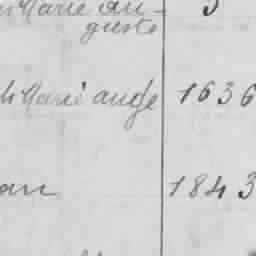 Marie au-
guste
Marie ange 1636
an 1843